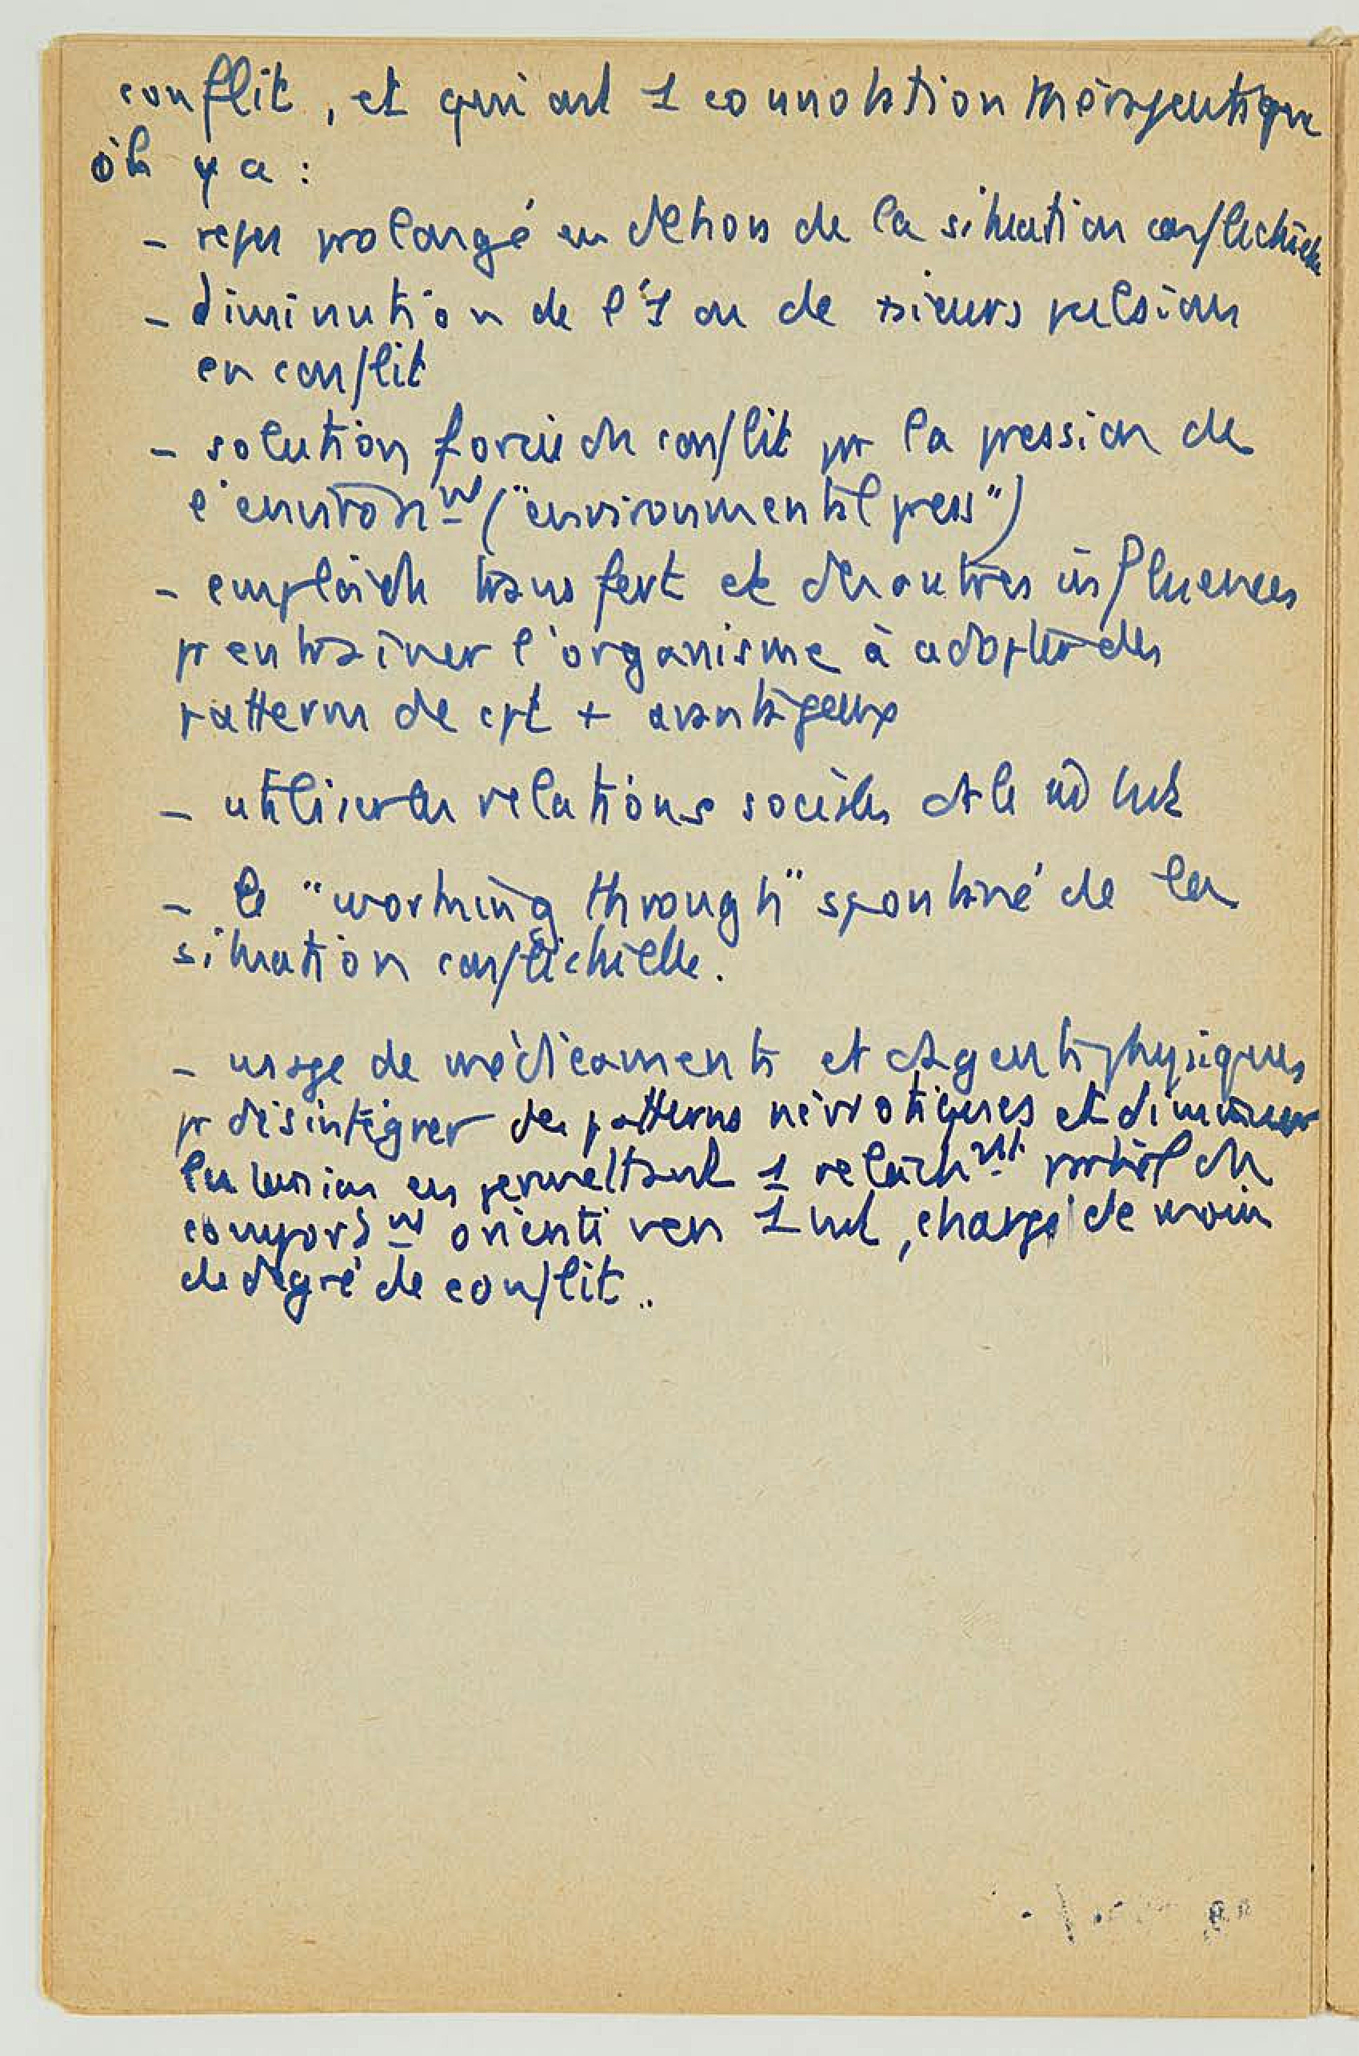 conflit, et qui ont 1 connotation thérapeutique
où il y a :
- repos prolongé en dehors de la situation conflictuelle
- diminution de l'1 ou de +sieurs pulsions
en conflit
- solution forcée du conflit pr la pression de
l'environnt ("environmental press")
- emploi du transfert et des autres influences
pr entraîner l'organisme à adopter des
patterns de cpt + avantageux
- utiliser les relations sociales
- le "working through" spontané de la
situation conflictuelle.
- usage de médicaments et d'agents physiques
pr désintégrer des patterns névrotiques et diminuer
la tension en permettant 1 relâchnt partiel du
comportnt orienté vers 1 but, chargé de moins
de degré de conflit..